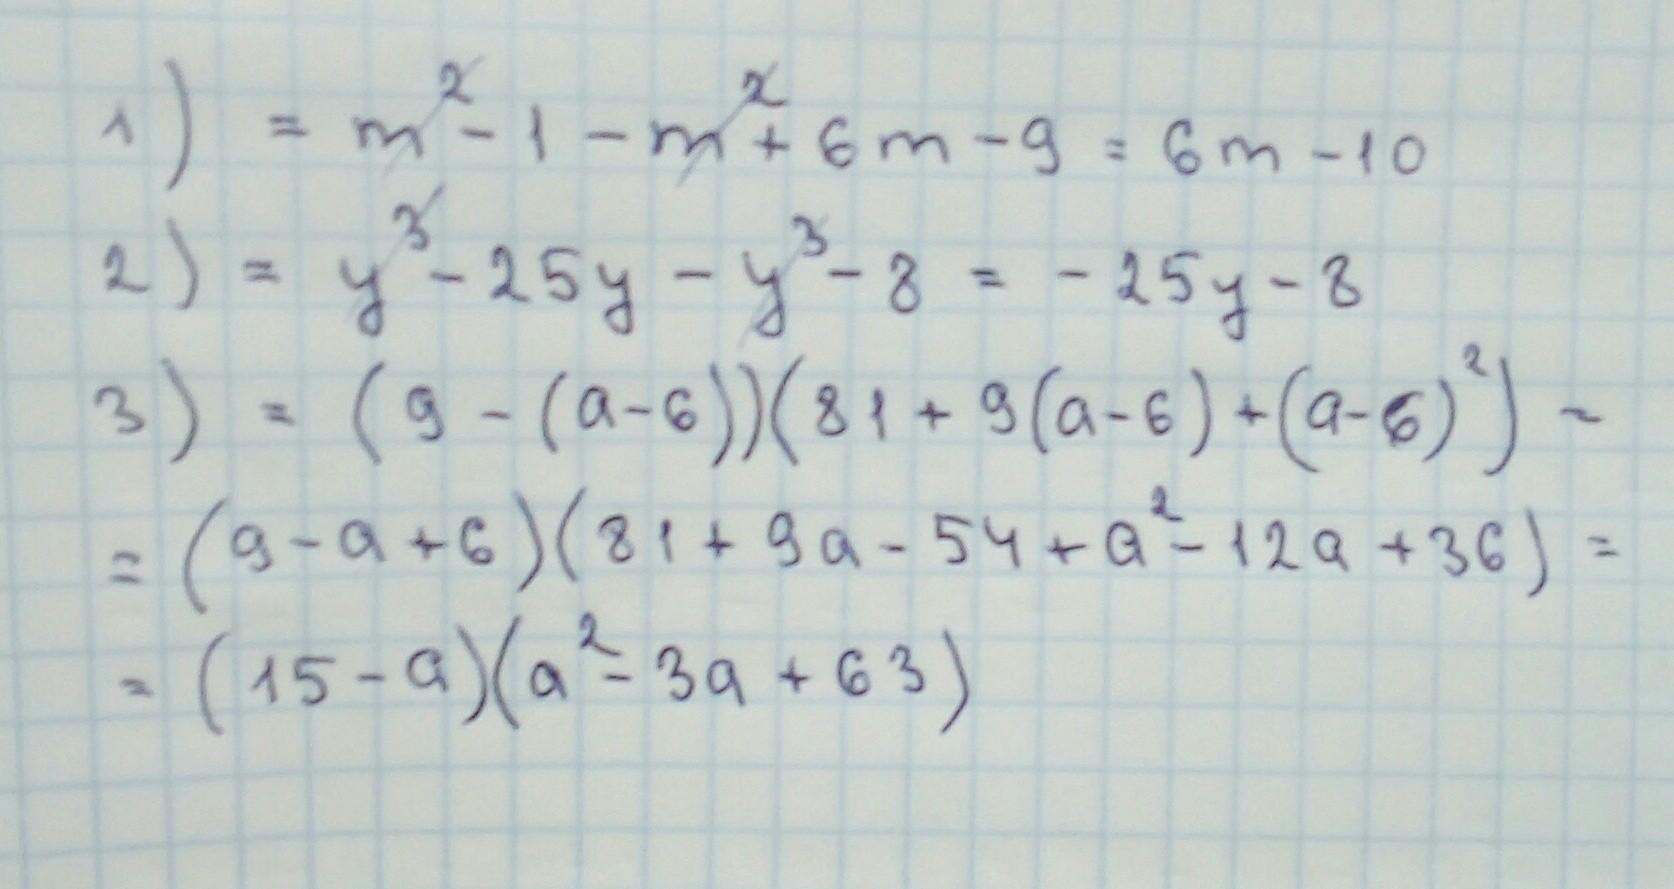 1) = m² - 1 - m² + 6m - 9 = 6m - 10
2) = y³ - 25y - y³ - 8 = - 25y - 8
3) = (9 - (a - 6))(81 + 9(a - 6) + (a - 6)²) =
= (9 - a + 6)(81 + 9a - 54 + a² - 12a + 36) =
= (15 - a)(a² - 3a + 63)